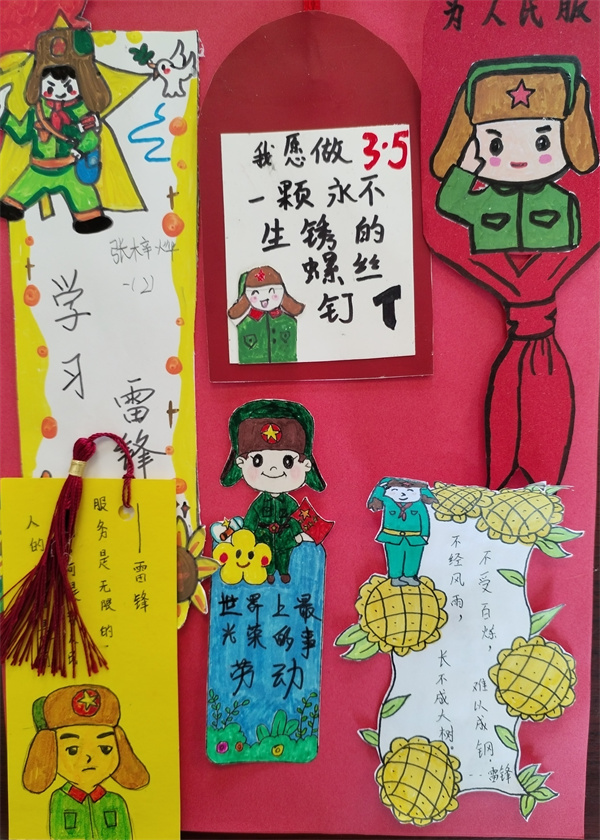 为人民服
一(2)
学习
雷锋
我愿做 3·5
一颗永不
生锈的
螺丝
钉
人的
服务是无限的.
——雷锋
世界上最
光荣的事
劳动
不经风雨，
长不成大树.
不受百炼，
难以成钢.
--雷锋